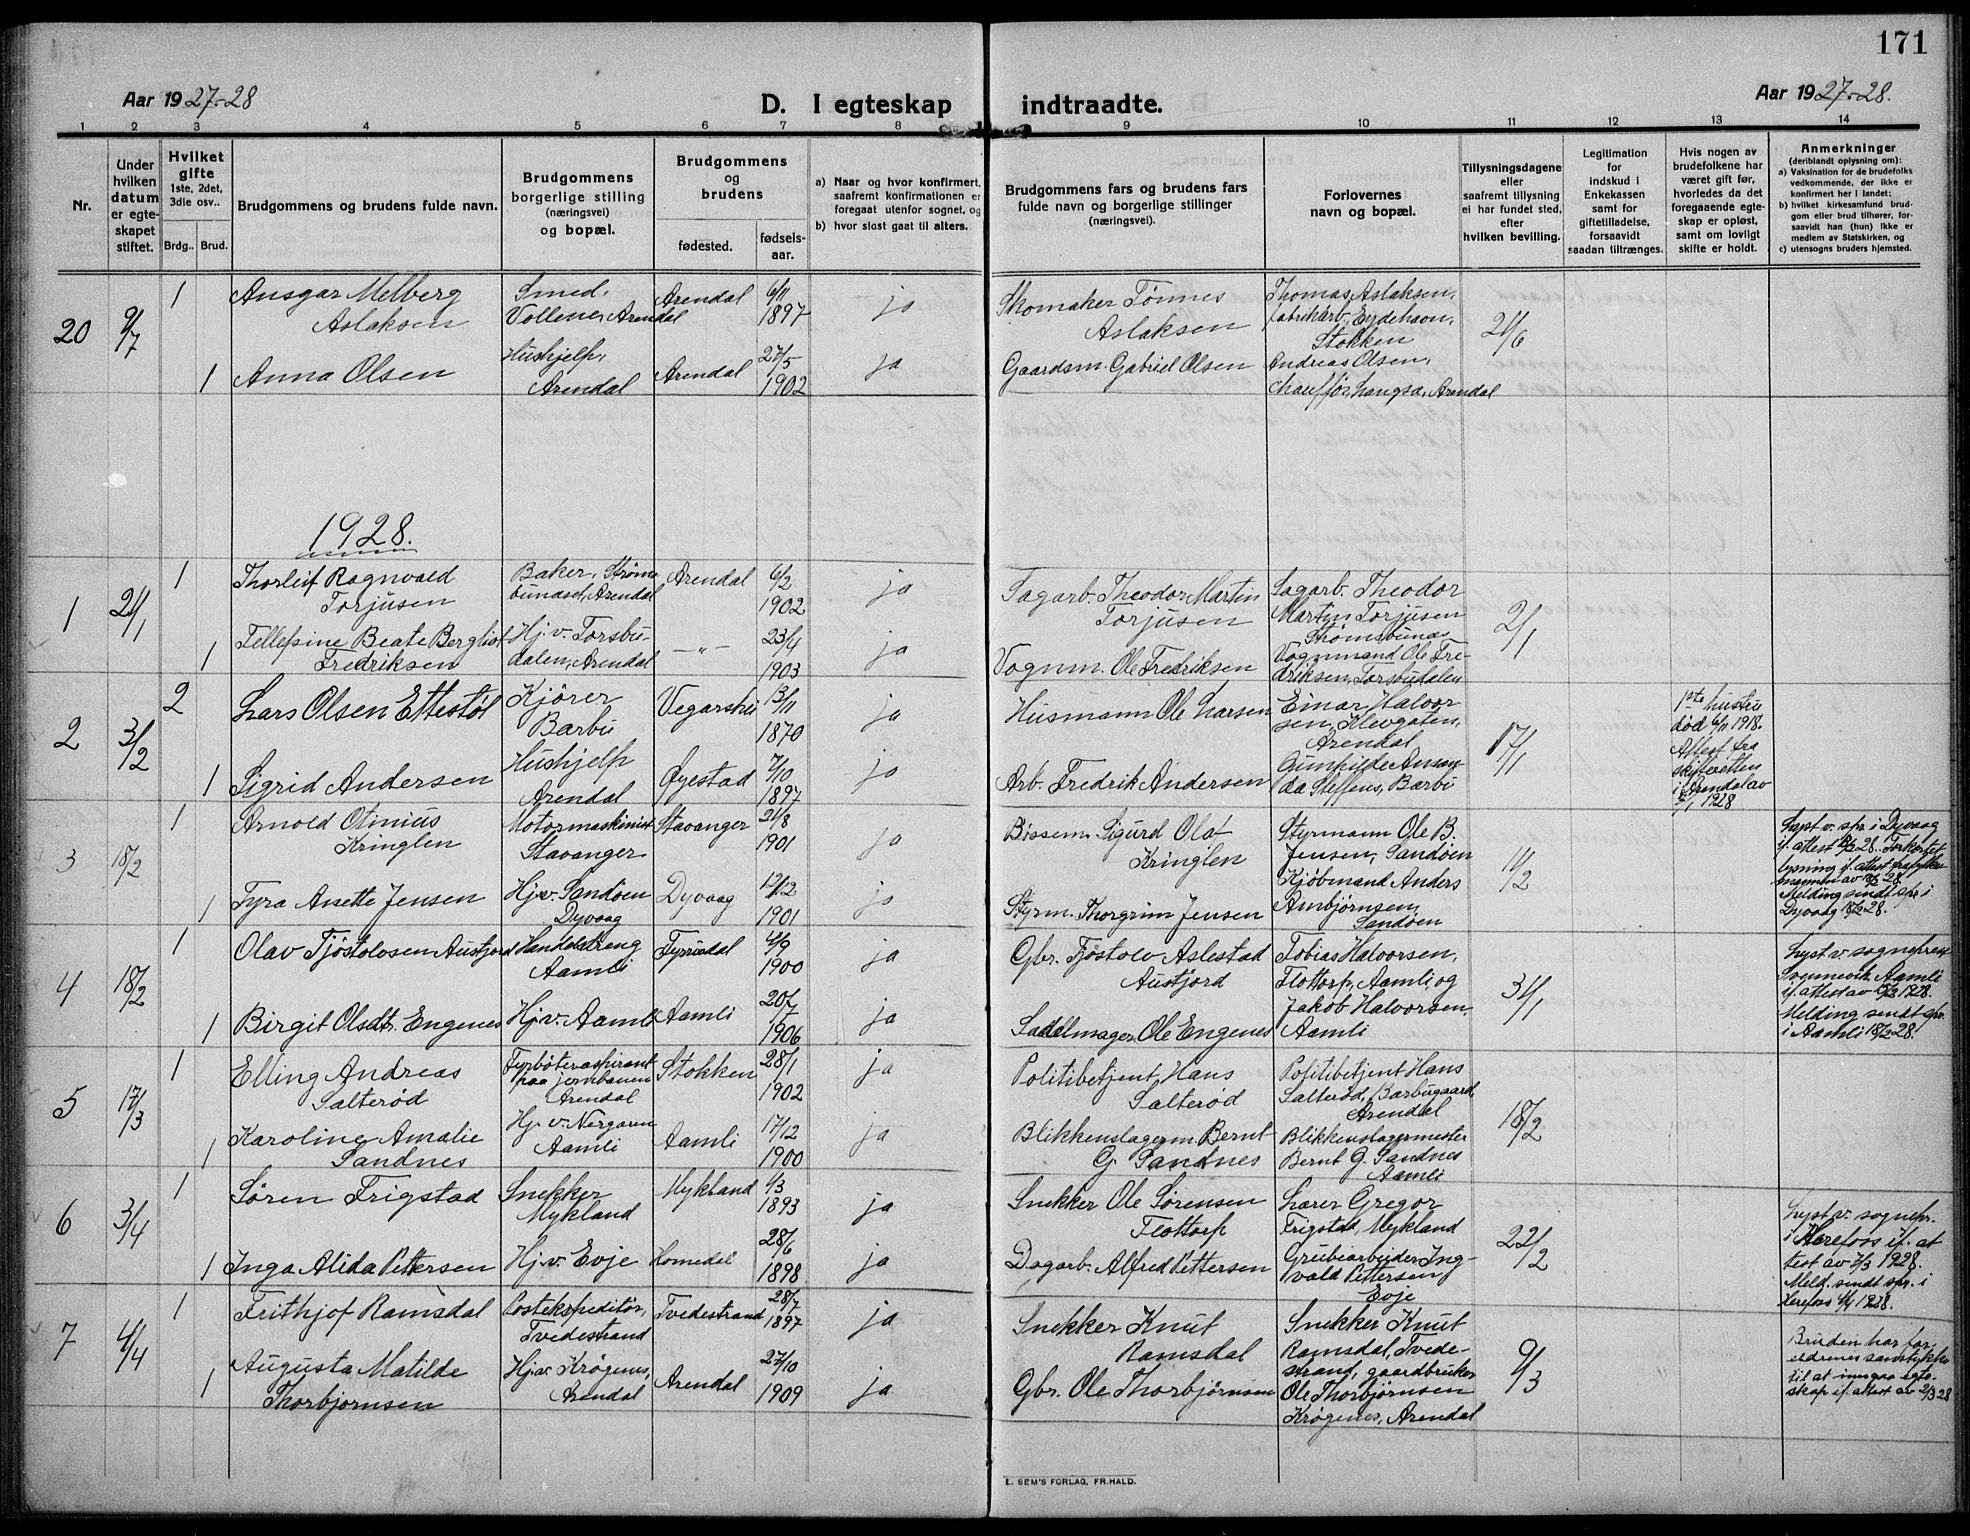 171
Aar 1927-28
D. I egteskap indtraadte.
Aar 1927-28.
1 2 3 4 5 6 7 8 9 10 11 12 13 14
Nr.
Under
hvilken
datum
er egte-
skapet
stiftet.
Hvilket
gifte
1ste, 2det,
3die osv..
Brdg.. Brud.
Brudgommens og brudens fulde navn.
Brudgommens
borgerlige stilling
(næringsvei)
og bopæl.
Brudgommens
og
brudens
fødested.
fødsels-
aar.
a) Naar og hvor konfirmert,
saafremt konfirmationen er
foregaat utenfor sognet, og
b) hvor sidst gaat til alters.
Brudgommens fars og brudens fars
fulde navn og borgerlige stillinger
(næringsvei).
Forlovernes
navn og bopæl.
Tillysningsdagene
eller
saafremt tillysning
ei har fundet sted,
efter
hvilken bevilling.
Legitimation
for
indskud i
Enkekassen
samt for
giftetilladelse,
forsaavidt
saadan tiltrænges.
Hvis nogen av
brudefolkene har
været gift før,
hvorledes da det
foregaaende egte-
skap er opløst,
samt om lovligt
skifte er holdt.
Anmerkninger
(deriblandt oplysning om):
a) Vaksination for de brudefolks
vedkommende, der ikke er
konfirmert her i landet;
b) hvilket kirkesamfund brud-
gom eller brud tilhører, for-
saavidt han (hun) ikke er
medlem av Statskirken, og
c) utensogns bruders hjemsted.
20 9/7
1 Ansgar Melberg
Aslaksen
Smed,
Vollene, Arendal
Arendal 6/11
1897
ja
Skomaker Tønnes
Aslaksen
Thomas Aslaksen,
fabrikarb., Eydehavn,
Stokken
26/6
1 Anna Olsen
Hushjelp,
Arendal
Arendal 27/5
1902
ja
Gaardsm. Gabriel Olsen
Andreas Olsen,
chauffør, Langsæ, Arendal
1928.
1 21/1
1 Thorleif Ragnvald
Torjusen
Baker, Strøms-
bunaset, Arendal
Arendal 6/2
1902
ja
Sagarb. Theodor Martin
Torjusen
Sagarb. Theodor
Martin Torjusen
Strømsbunas
2/1
1 Tellefsine Beate Bergliot
Fredriksen
Hj. v. Torsbu-
dalen, Arendal
—„— 23/4
1903
ja
Vognm. Ole Fredriksen
Vognmand Ole Fre-
driksen, Torsbudalen
2 3/2
2 Lars Olsen Ettestøl
Kjører
Barbu
Vegarshei 13/11
1870
ja
Husmann Ole Larsen
Einar Halvor
sen, Klevgaten,
Arendal
17/1
1ste hustru
død 6/11 1918.
Attest fra
skifteretten
i Arendal av
1928
1 Sigrid Andersen
Hushjelp
Arendal
Øyestad 7/10
1897
ja
Arb. Fredrik Andersen
Gunhilde Aman-
da Steffens, Barbu
3 18/2
1 Arnold Otinius
Kringlen
Motormaskinist
Stavanger
Stavanger 21/8
1901
ja
Bøssem. Sigurd Olaf
Kringlen
Styrmann Ole B.
Jensen, Sandøen
11/2
Lyst v. spr. i Dyvaag
if. attest 28. Forkortet
lysning if. attest fra fylkes
mannen av 18/2 28
Melding sendt spr. i
Dyvaag 18/2 28.
1 Fyra Anette Jensen
Hj. v. Sandøen
Dyvaag
Dyvaag 12/12
1901
ja
Styrm. Thorgrim Jensen
Kjøbmand Anders
Ambjørnsen,
Sandøen
4 18/2
1 Olav Tjøstolosen Austjord
Handelsdreng
Aamli
Fyrisdal 4/9
1900
ja
Gbr. Tjøstolv Aslestad
Austjord
Tobias Halvorsen,
Flottorp, Aamli, og
Jakob Halvorsen,
Aamli
31/1
Lyst v. sogneprest
Svennevik, Aamli
if. attest av 1928.
Melding sendt spr.
i Aamli 18/2 28.
1 Birgit Olsdtr. Engenes
Hj. v. Aamli
Aamli 20/7
1906
ja
Sadelmager Ole Engenes
5 17/3
1 Elling Andreas
Salterød
Fyrbøteraspirant
paa jernbanen
Arendal
Stokken 28/1
1902
ja
Politibetjent Hans
Salterød
Politibetjent Hans
Salterød, Barbugaard,
Arendal
18/2
1 Karoline Amalie
Sandnes
Hj. v. Nergaren
Aamli
Aamli 17/12
1900
ja
Blikkenslagerm. Bernt
G. Sandnes
Blikkenslagermester
Bernt G. Sandnes
Aamli
6 3/4
1 Søren Frigstad
Snekker
Mykland
Mykland 4/3
1893
ja
Snekker Ole Sørensen
Flottorp
Lærer Gregor
Frigstad, Mykland
22/2
Lyst v. sognepr.
i Herefoss if. at
test av 2/3 1928.
Meld. sendt spr. i
Herefoss 4/4 1928.
1 Inga Alida Pettersen
Hj. v. Evje
Homedal 28/6
1898
ja
Dagarb. Alfred Pettersen
Grubearbeider Ing-
vald Pettersen,
Evje
7 4/4
1 Frithjof Ramsdal
Postekspeditør,
Tvedestrand
Tvedestrand 28/7
1897
ja
Snekker Knut
Ramsdal
Snekker Knut
Ramsdal, Tvede-
strand, gaardbruker
Ole Thorbjørnsen
Krøgenes, Arendal
9/3
Bruden har for
eldrenes samtykke
til at inngaa egte-
skap if. attest av 2/3 28
1 Augusta Matilde
Thorbjørnsen
Hj. v. Krøgenes,
Arendal
Arendal 27/10
1909
ja
Gbr. Ole Thorbjørnsen
E. SEM'S FORLAG, FR.HALD.